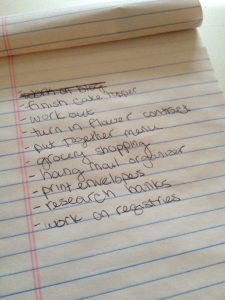 work on blog
- finish cake topper
- work out
- turn in flower contract
- put together menu
- grocery shopping
- hang mail organizer
- print envelopes
- research banks
- work on registries